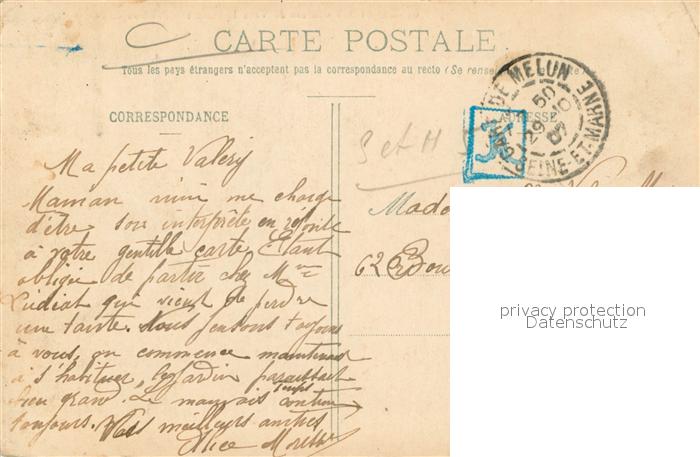 CARTE POSTALE
Tous les pays étrangers n'acceptent pas la correspondance au recto (Se rense
CORRESPONDANCE
ADRESSE
GARE DE MELUN
SEINE-ET-MARNE
3 et H
Ma petite Valery
Maman mimi me charge
d'être son interprète en réponse
à votre gentille carte. Etant
obligée de partir chez Mme
Ludiat qui vient de perdre
une tante. Nous pensons toujours
à vous, on commence maintenant
à s'habituer, le jardin paraissait
bien grand. Le mauvais temps continue
toujours. Vos meilleurs amitiés
Alice
Mada
62
privacy protection
Datenschutz